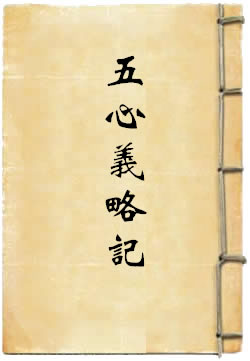 五心義略記